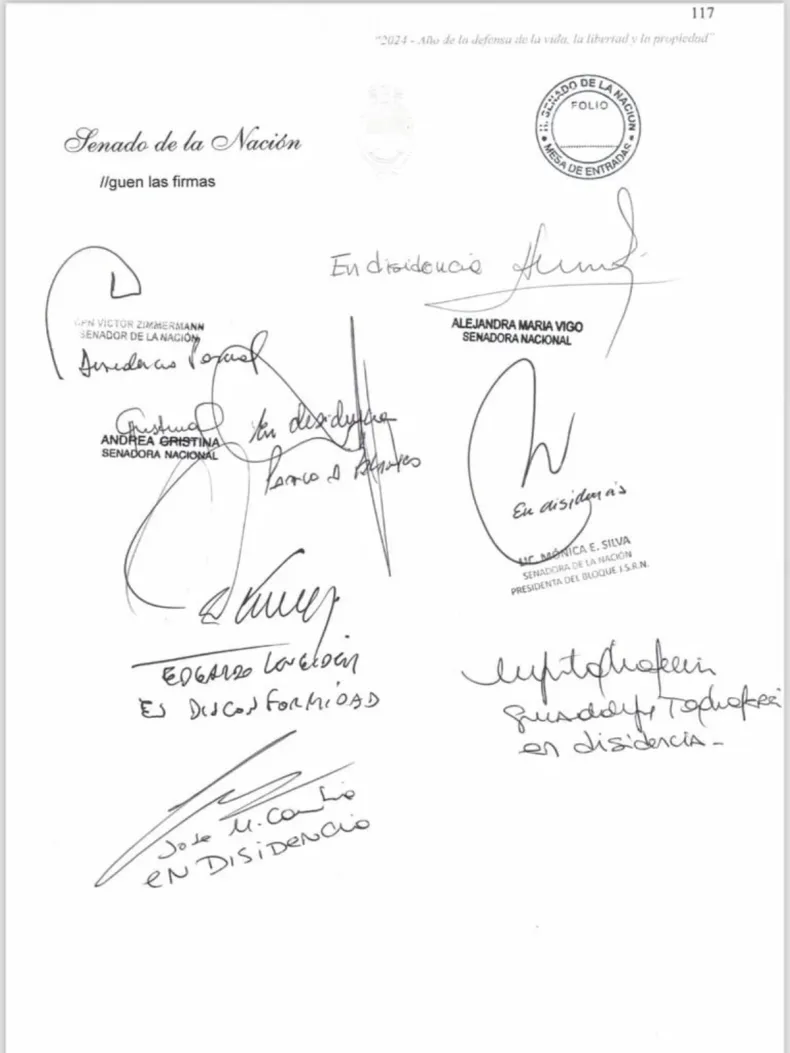 117
"2024 - Año de la defensa de la vida, la libertad y la propiedad"
Senado de la Nación
H. SENADO DE LA NACION
FOLIO
MESA DE ENTRADAS
//guen las firmas
En disidencia
ALEJANDRA MARIA VIGO
SENADORA NACIONAL
CPN VICTOR ZIMMERMANN
SENADOR DE LA NACIÓN
disidencia Parcial
Cristina
En disidencia
ANDREA CRISTINA
SENADORA NACIONAL
En disidencia
LIC. MÓNICA E. SILVA
SENADORA DE LA NACIÓN
PRESIDENTA DEL BLOQUE J.S.R.N.
EDGARDO
EN DISCONFORMIDAD
Guadalupe Tagliaferri
en disidencia -
Jose M. Carambia
EN DISIDENCIA